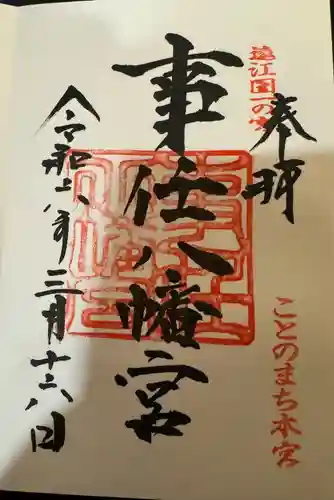 奉拝
遠江国一の宮
事任八幡宮
ことのまち本宮
令和六年三月十六日